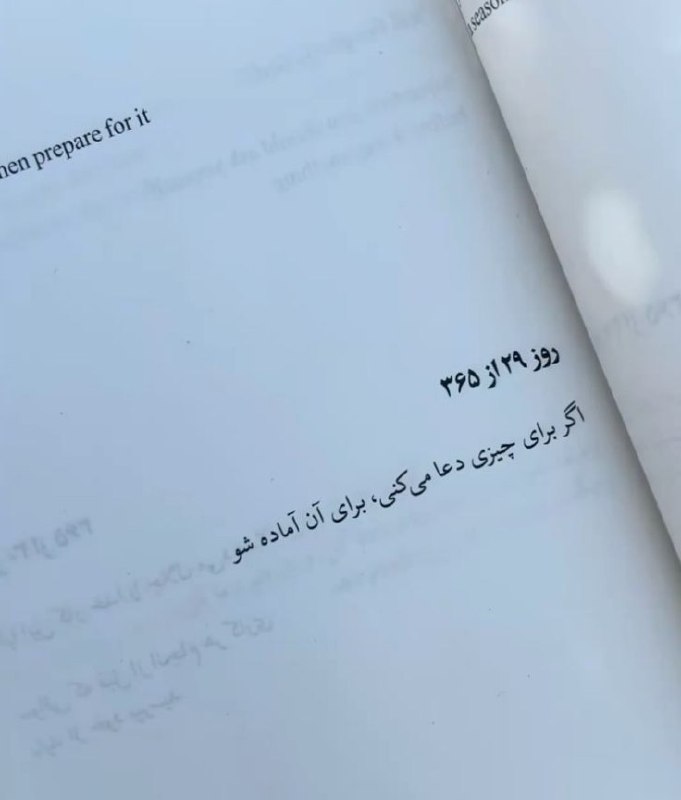 season
hen prepare for it
روز ۲۹ از ۳۶۵
اگر برای چیزی دعا می‌کنی، برای آن آماده شو